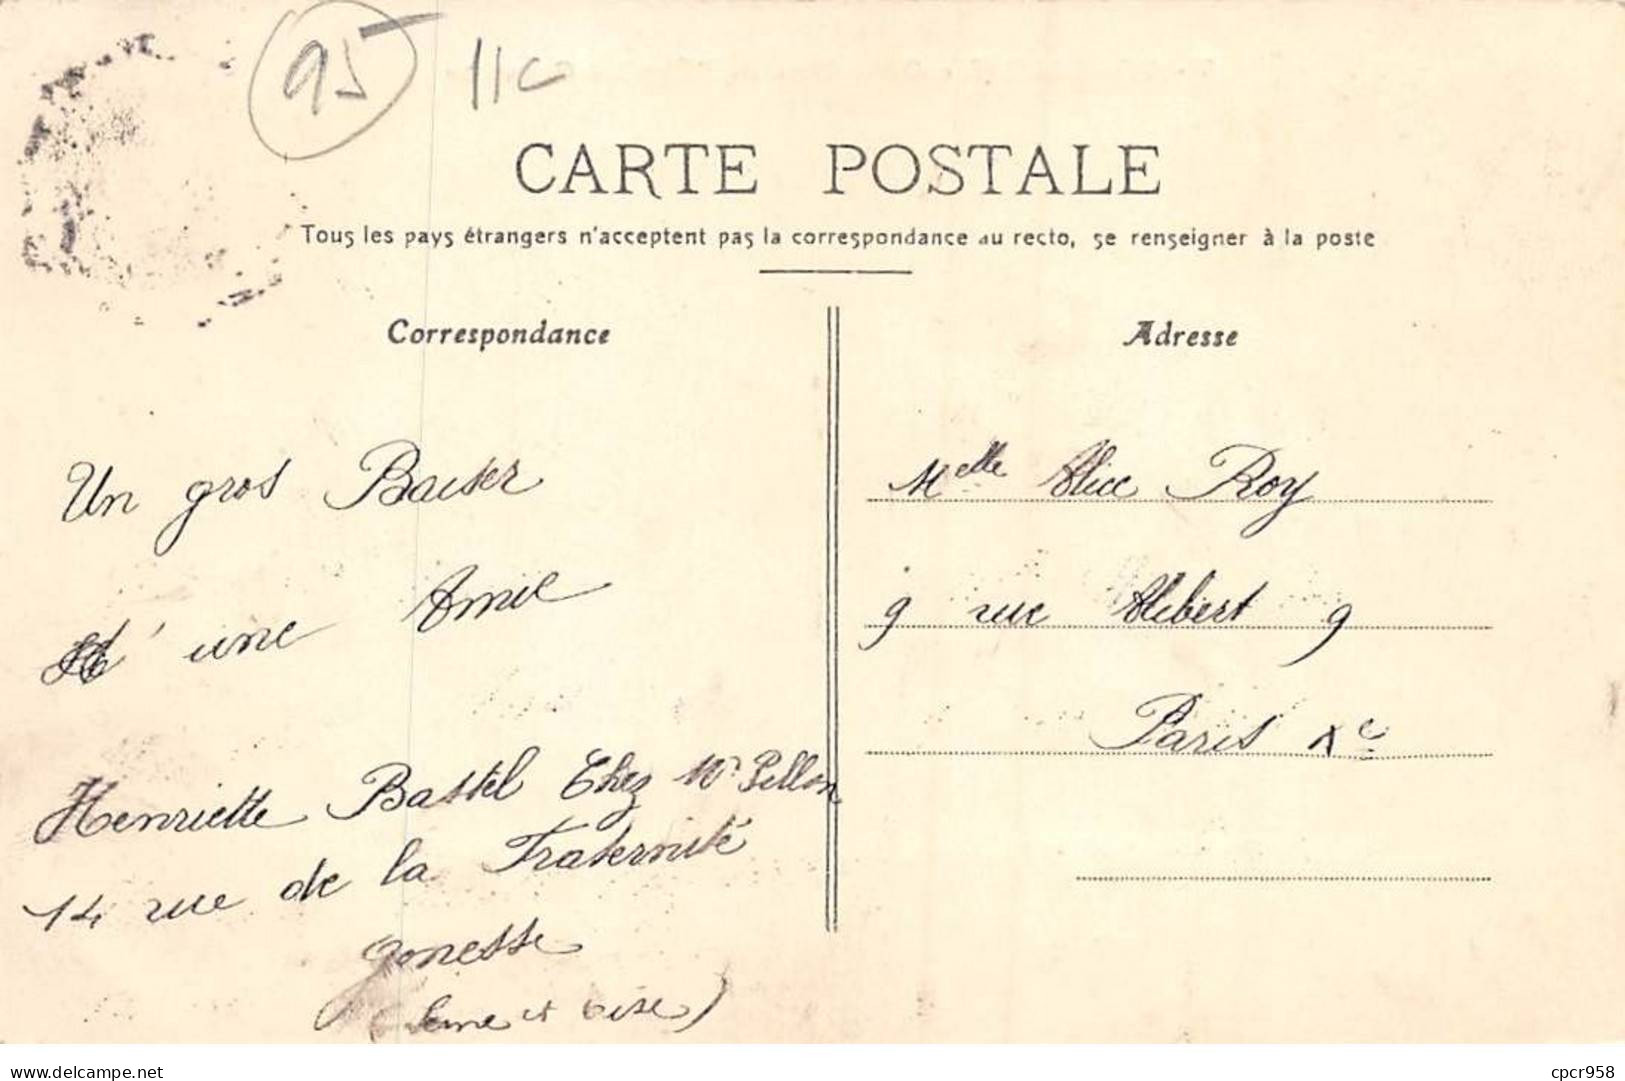 95 11c
CARTE POSTALE
Tous les pays étrangers n'acceptent pas la correspondance au recto, se renseigner à la poste
Correspondance
Un gros Baiser
d'une Amie
Henriette Bastel Chez Mr Pillon
14 rue de la Fraternité
Gonesse
(Seine et Oise)
Adresse
Melle Alice Roy
9 rue Alibert 9
Paris Xe
www.delcampe.net
cpcr958